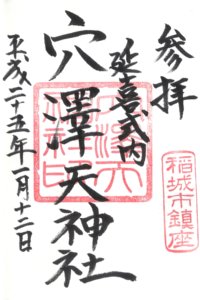 参拝
稲城市鎮座
延喜式内
穴澤天神社
平成二十五年一月十二日